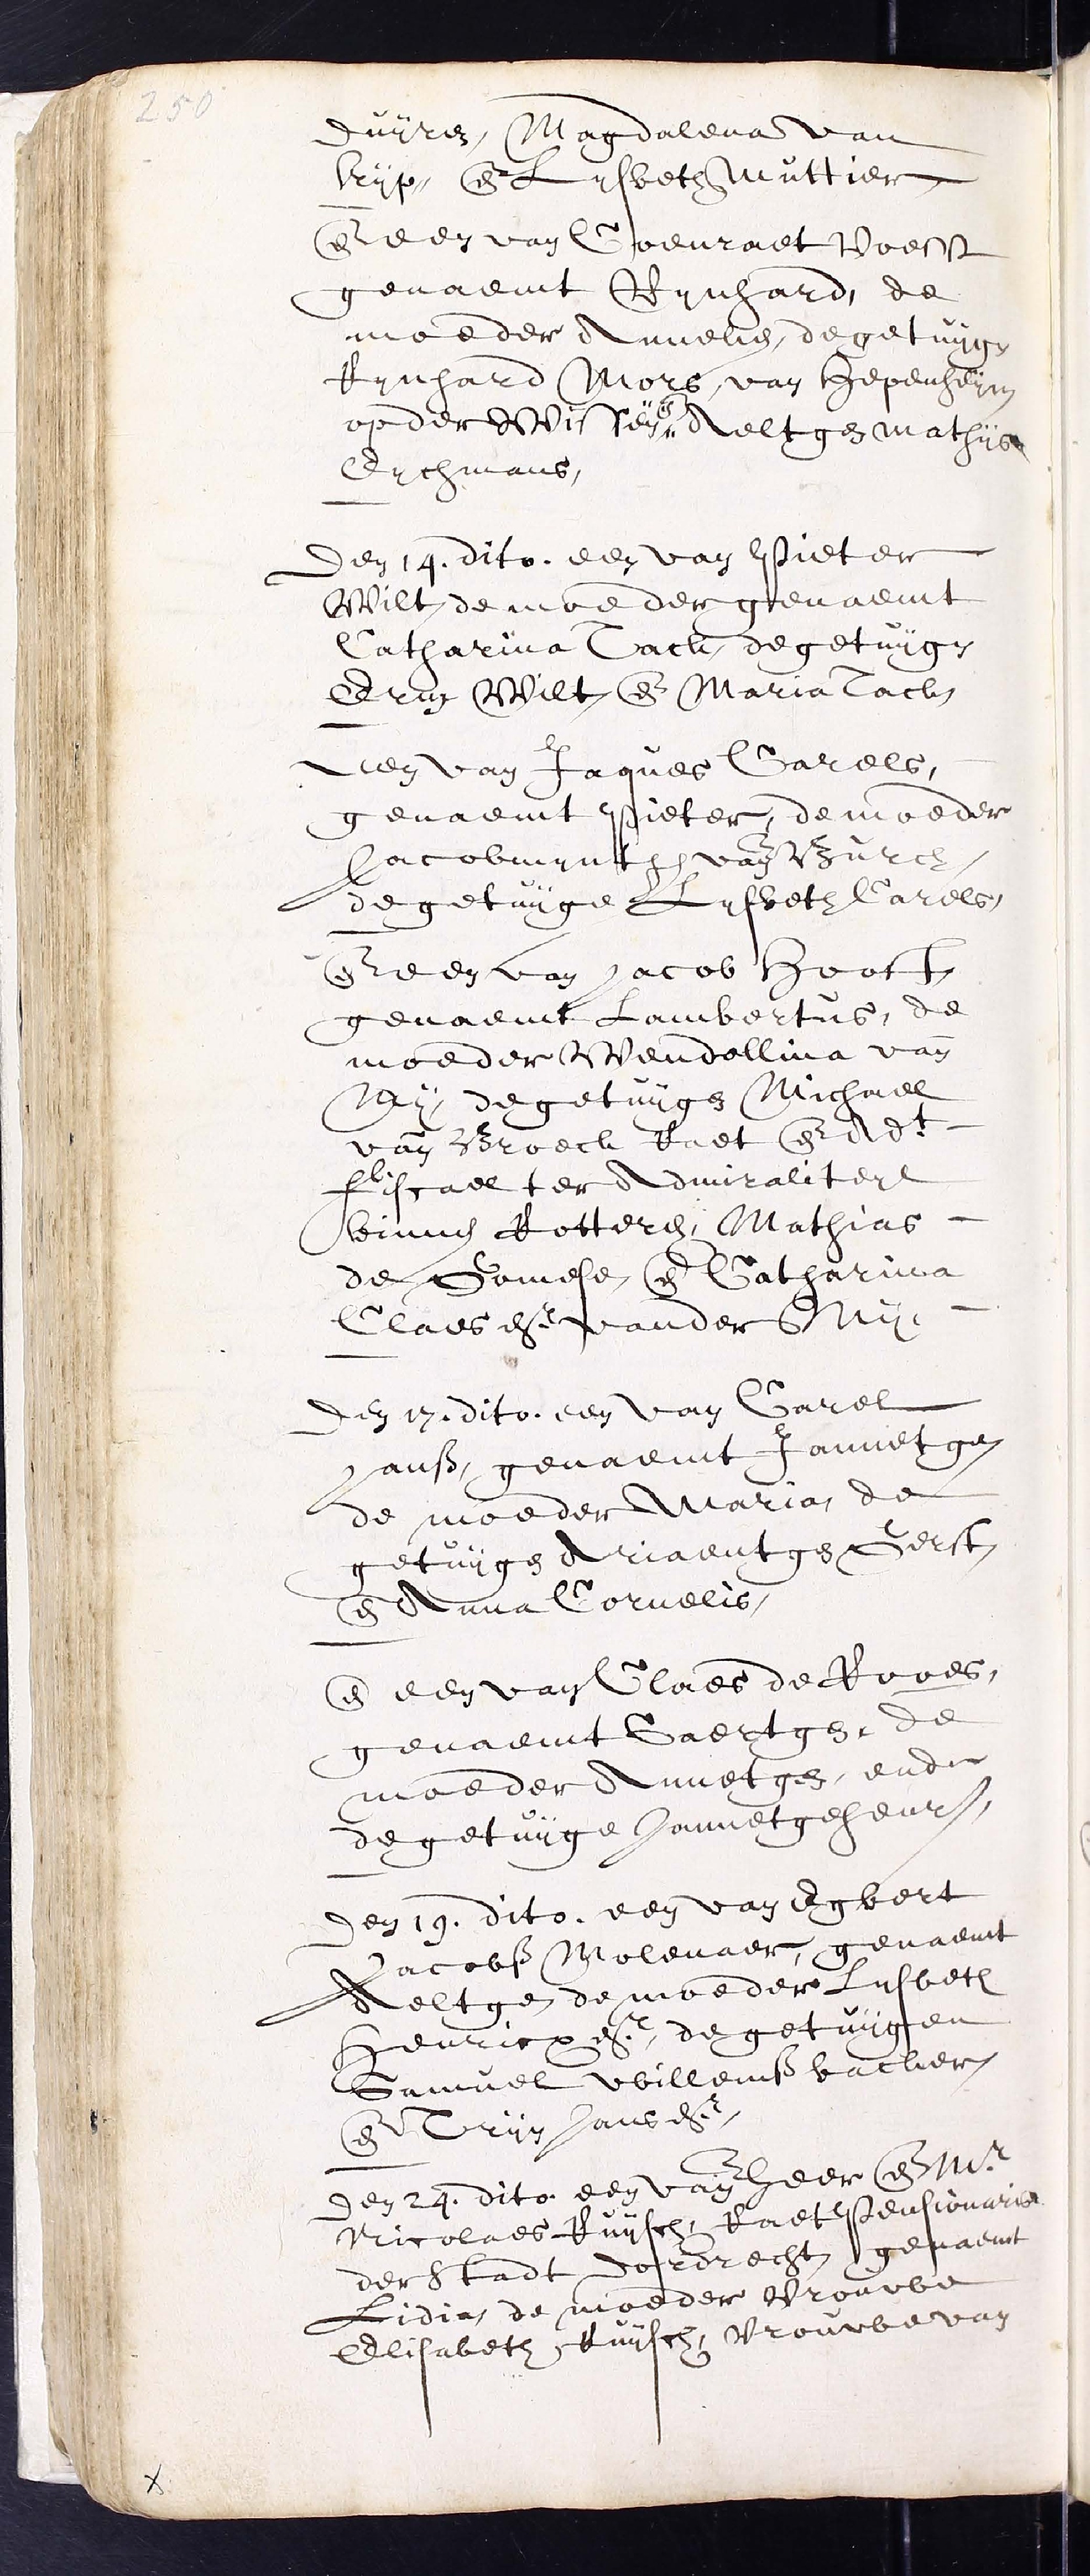 250
duyren, Magdalena van
kyp, en Lysbeth Muttier
En een van Coenraet Voest
genaemt Rynhard, de
moeder Annelis, de getuyge
Rynhard Mors, van Hepenheym
op der Wissen, en Aeltgen Mathys
Eychmans,
Den 14. dito. een van Pieter
Wilt, de moeder genaemt
Catharina Tack, de getuyge
Wilt, en Maria Tack,
een van Jaques Carels,
genaemt Pieter, de moeder
Jacobmyntgen van Burch,
de getuyge Lysbeth Carels,
En een van Jacob Hooft,
genaemt Lambertus, de
moeder Wendellina van
Ny, de getuygen Michael
van Broeck Raet en Advt
fiscael ter Admiraliteyt
binnen Rotterd, Mathias
de Somese, en Catharina
Claes dr. vander Ny.
Den 17. dito. een van Carel
Janß, genaemt Jannetgen
de moeder Maria, de
getuygen Ariaentgen Gerst,
en Anna Cornelis,
en een van Claes de Roos,
genaemt Gaertgen, de
moeder Annetgen, ende
de getuyge Jannetge henrx,
Den 19. dito. een van Egbert
Jacobß Molenaer, genaemt
Aeltgen de moeder Lysbeth
Henricx dr., de getuygen
Samuel Willemß backer,
en Tryn Jans dr,
Den 24. dito. een van Heer en Mr.
Nicolaes Ruysch, Raet Pensionaris
der Stadt Dordrecht, genaemt
Lidia, de moeder Vrouwe
Elisabeth Ruysch, Vrouwe van
x